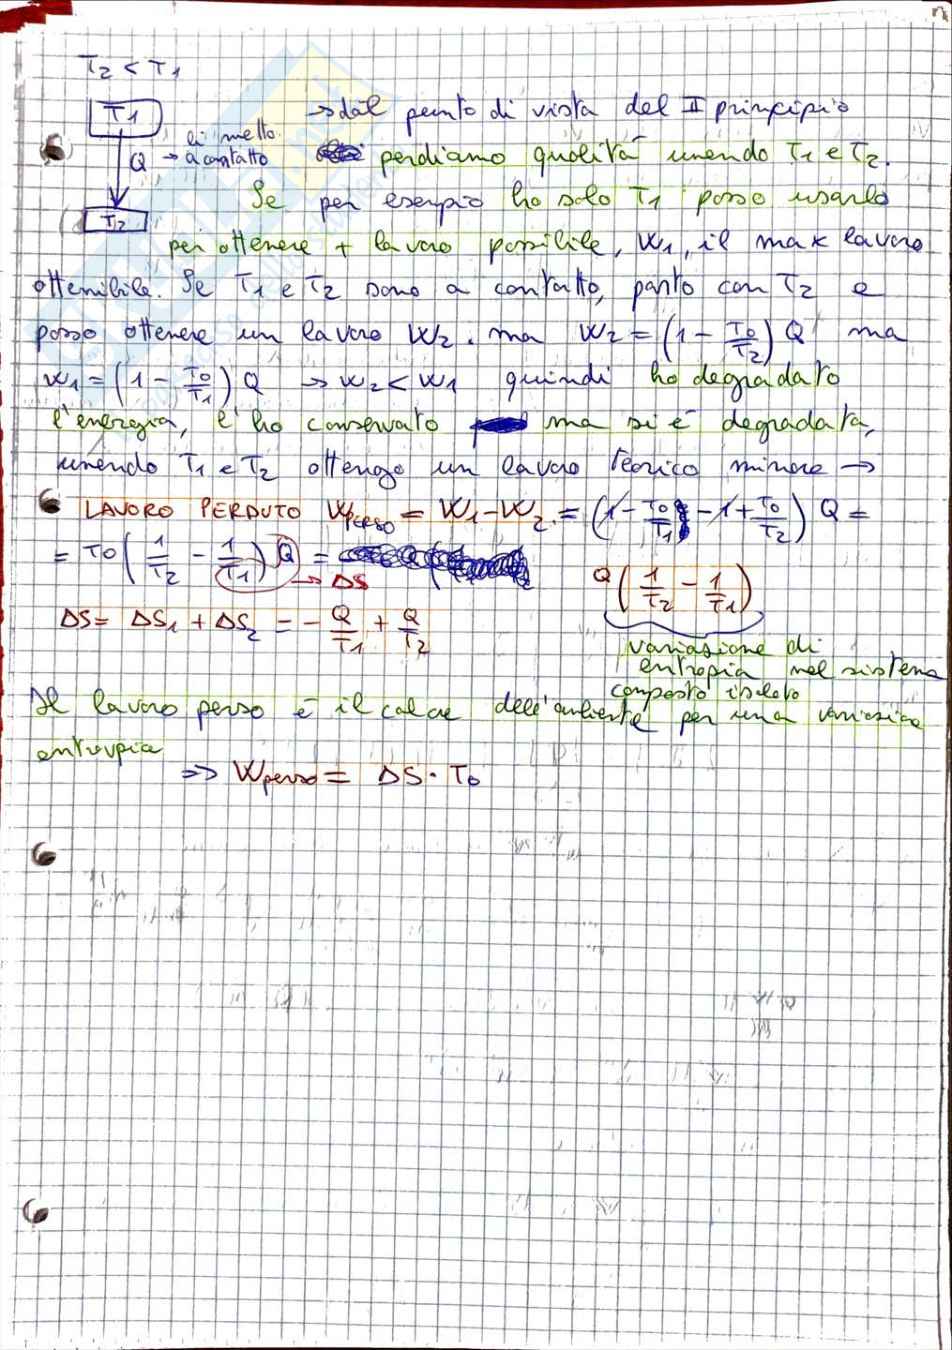 T2 < T1
T1
→ dal punto di vista del II principio
Q → li metto a contatto
perdiamo qualità unendo T1 e T2.
Se per esempio ho solo T1 posso usarlo
T2
per ottenere + lavoro possibile, W1, il max lavoro
ottenibile. Se T1 e T2 sono a contatto, parto con T2 e
posso ottenere un lavoro W2. ma W2 = (1 - T0/T2) Q ma
W1 = (1 - T0/T1) Q → W2 < W1 quindi ho degradato
l'energia, l'ho conservato ma si è degradata,
unendo T1 e T2 ottengo un lavoro teorico minore →
LAVORO PERDUTO Wperso = W1 - W2 = (1 - T0/T1 - 1 + T0/T2) Q =
= T0 (1/T2 - 1/T1) Q =
→ ΔS
Q (1/T2 - 1/T1)
ΔS = ΔS1 + ΔS2 = - Q/T1 + Q/T2
variazione di
entropia nel sistema
composto isolato
Il lavoro perso è il calore dell'ambiente per una variazione
entropia
⇒ Wperso = ΔS · T0